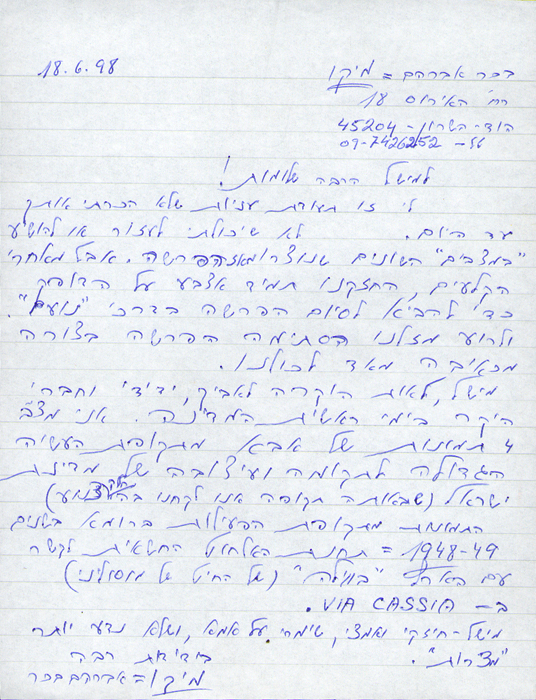 18.6.98
בכר אברהם = מיקו
רח' האירוס 18
הוד-השרון - 45204
טל - 09-7426252
למישל הרבה שלומות!
לי זו תעודת עניות שלא הכרתי אותך
עד היום. לא שיכולתי לעזור או להושיע
"במצבים" השונים שנוצרו מאז הפרשה. אבל מאחרי
הקלעים, החזקנו תמיד אצבע על הדופק
כדי להביא לסיום הפרשה בדרכי "נועם".
ולרוע מזלנו הסתימה הפרשה בצורה
מכאיבה מאד לכולנו.
מישל, לאות הוקרה לאביך, ידידי וחברי
היקר בימי ראשית המדינה. אני מצ"ב
4 תמונות של אבא מתקופת העשיה
הגדולה לתקומה ועיצובה של מדינת
ישראל (שבאותה תקופה אנו לקחנו בה חלק)
התמונות מתקופת הפעילות ברומא בשנים
1948-49 = תחנת האלחוט החשאית לקשר
עם הארץ "בוילה" (של החיל של מוסוליני)
ב- VIA CASSIA.
מישל - חיזקי ואמצי, שימרי על אמא, ושלא נדע יותר
"מצירות".
בידידות רבה
מיקו = אברהם בכר